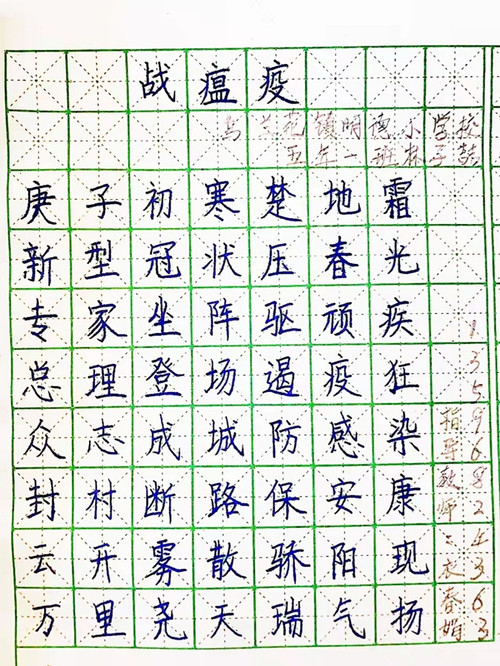 战瘟疫
乌兰花镇明德小学校
五年一班林子喆
庚子初寒楚地霜
新型冠状压春光
专家坐阵驱顽疾
总理登场遏疫狂
众志成城防感染
封村断路保安康
云开雾散骄阳现
万里尧天瑞气扬
指导教师:衣春娟
13596824363